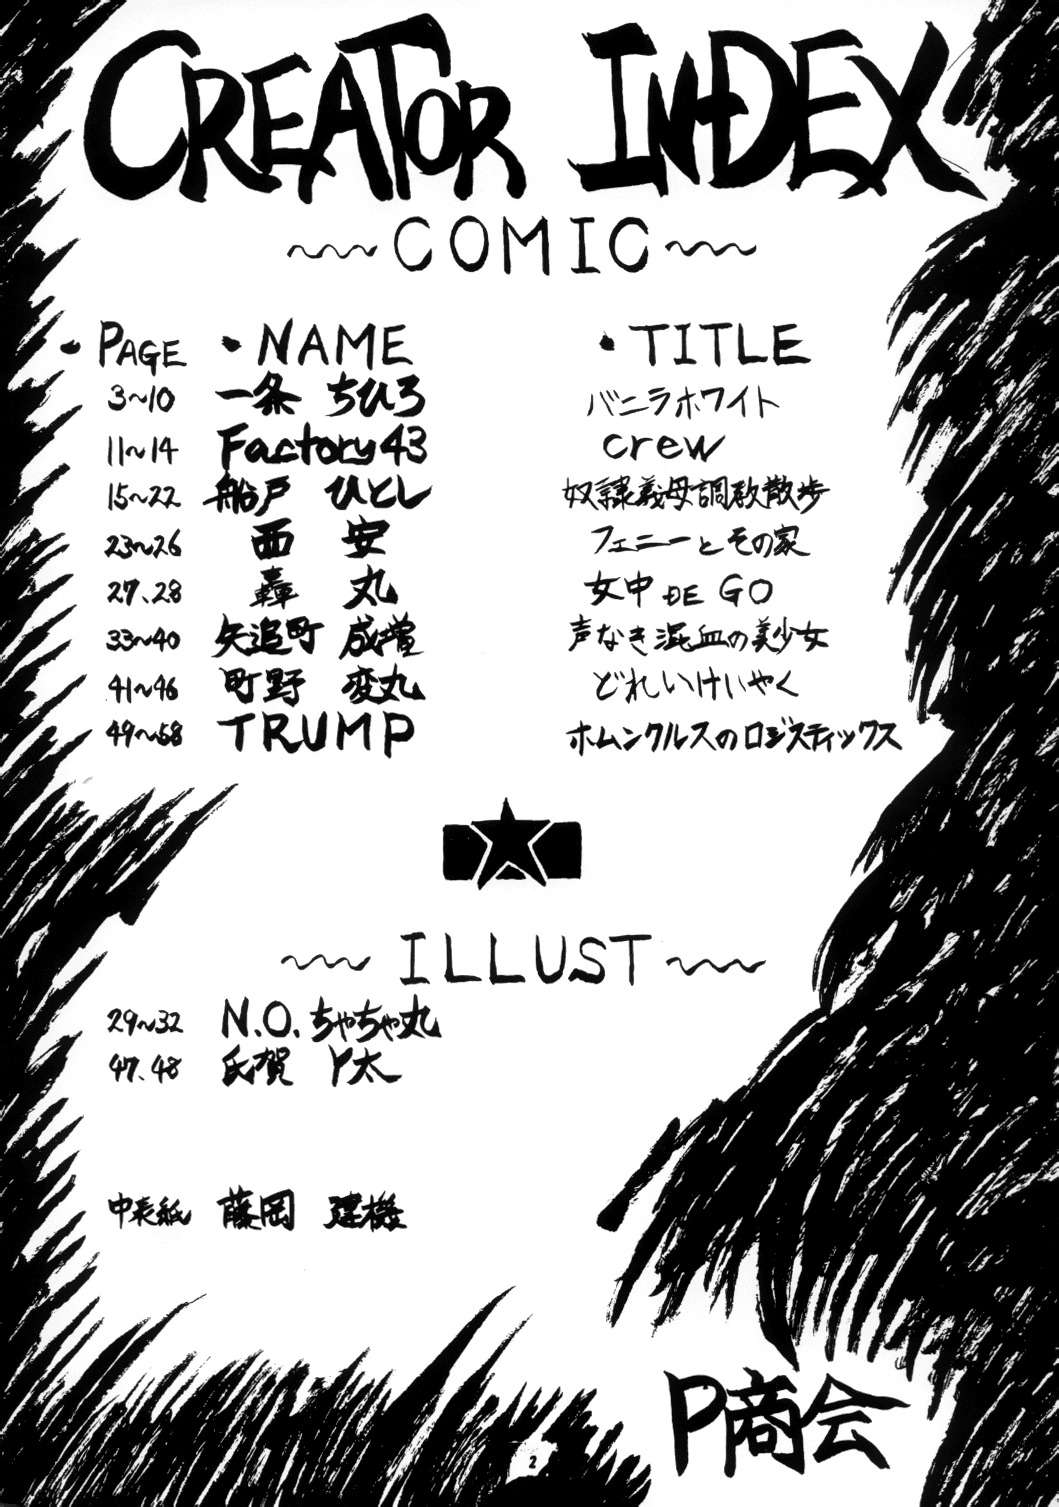 CREATOR INDEX
~COMIC~
・PAGE ・NAME ・TITLE
3~10 一条 ちひろ バニラホワイト
11~14 Factory43 crew
15~22 船戸 ひとし 奴隷義母調教散歩
23~26 西 安 フェニーとその家
27.28 轟 丸 女中 DE GO
33~40 矢追町 成増 声なき混血の美少女
41~46 町野 変丸 どれいけいやく
49~58 TRUMP ホムンクルスのロジスティックス
~ILLUST~
29~32 N.O.ちゃちゃ丸
47.48 氏賀 Y太
中表紙 藤岡 建機
P商会
2